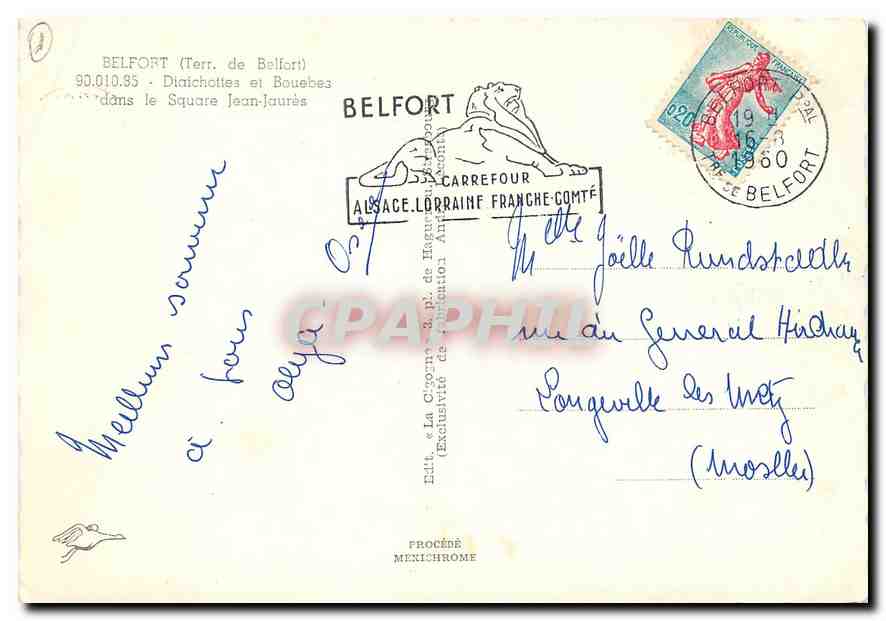 BELFORT (Terr. de Belfort)
90.010.85 - Diaichottes et Bouebes
dans le Square Jean-Jaurès
BELFORT
CARREFOUR
ALSACE.LORRAINE FRANCHE-COMTÉ
REPUBLIQUE FRANÇAISE
0,20
BELFORT PPAL
19 H
16-8
1960
TRE DE BELFORT
Meilleurs souvenirs
à tous
Olga - Oscar
Edit. « La Cigogne » 3, pl. de Haguenau, Strasbourg
(Exclusivité de fabrication André Leconte)
Melle Joëlle Rundstadler
rue du General
Longeville les Metz
(Moselle)
PROCÉDÉ
MEXICHROME
CPAPHIL